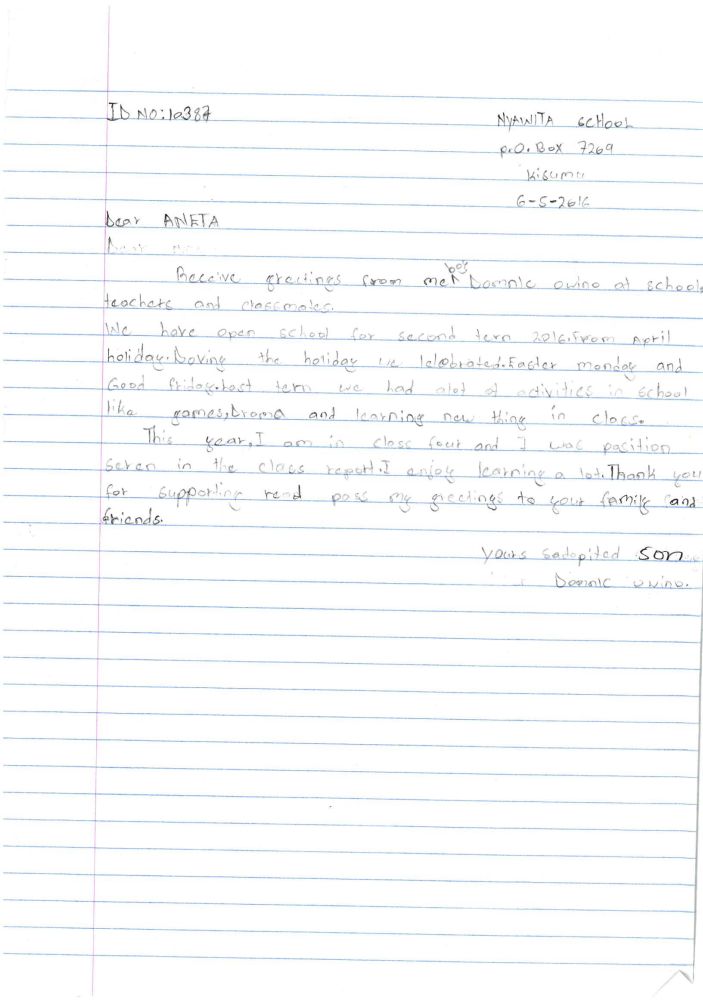 ID NO: 10387
NYAWITA SCHOOL
P.O. BOX 7269
Kisumu
6-5-2016
Dear ANETA
Dear
Receive greetings from me Domnic owino at school
teachers and classmates.
We have open school for second tern 2016.From April
holiday.Doving the holiday we lelebrated.Easter monday and
Good friday.Last tern we had alot of activities in school
like games,Droma and learning new thing in class.
This year,I am in class four and I was position
seven in the class report.I enjoy learning a lot.Thank you
for supporting read pass my greetings to your family and
friends.
yours sadopited son
Domnic owino.